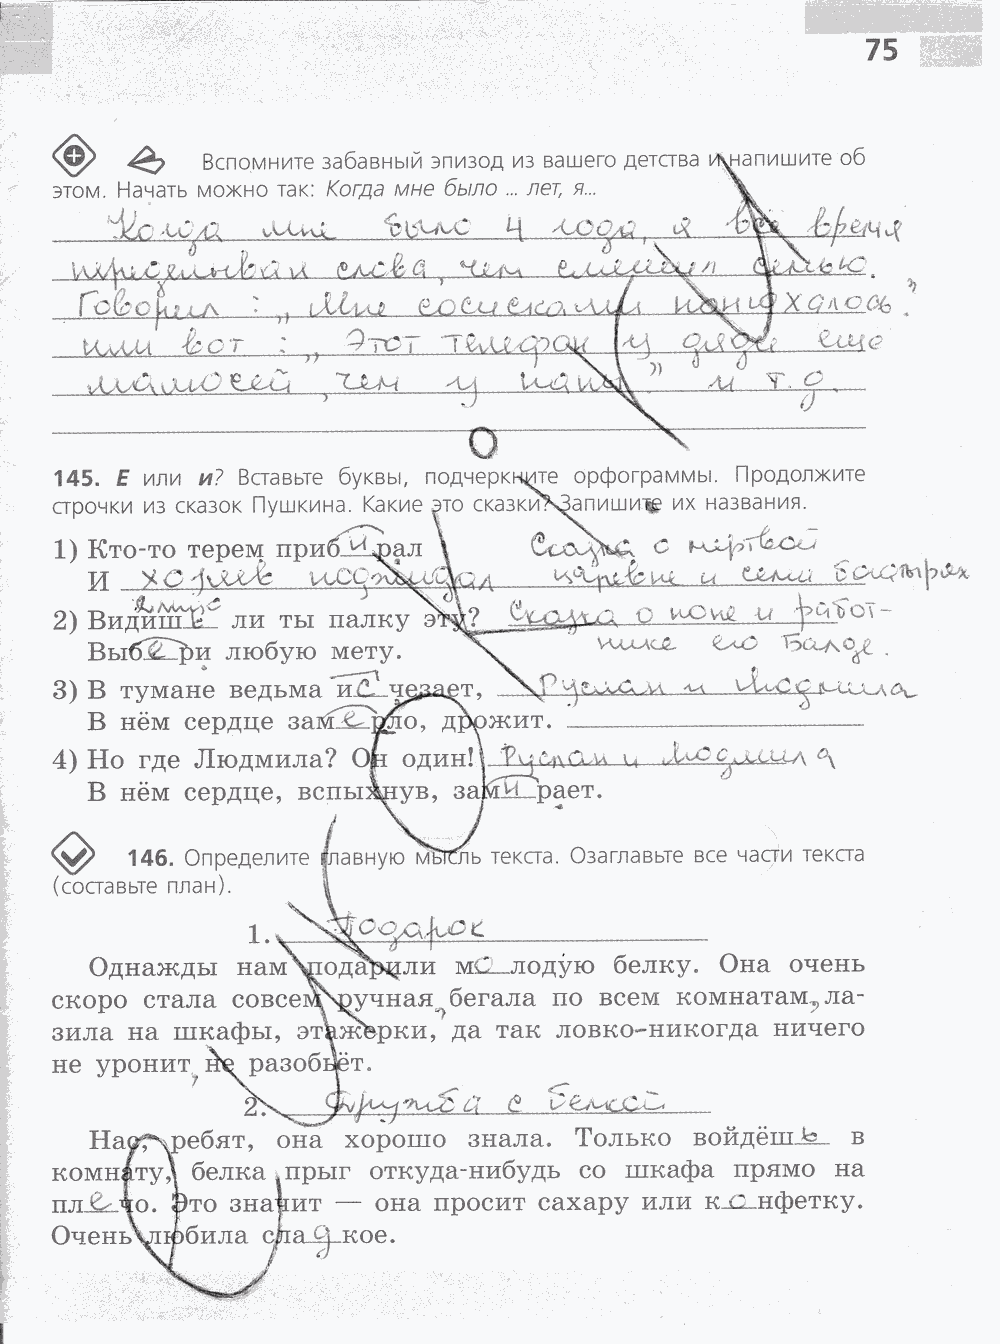 75
Вспомните забавный эпизод из вашего детства и напишите об
этом. Начать можно так: Когда мне было ... лет, я...
Когда мне было 4 года, я всё время
переделывал слова, чем смешил семью.
Говорил : „Мне сосисками понюхалось".
или вот : „Этот телефон у дяди еще
мамосей, чем у папы" и т.д.
145. Е или и? Вставьте буквы, подчеркните орфограммы. Продолжите
строчки из сказок Пушкина. Какие это сказки? Запишите их названия.
1) Кто-то терем прибирал Сказка о мёртвой
И хозяев поджидал царевне и семи богатырях
2) Видишь ли ты палку эту? Сказка о попе и работ-
Выбери любую мету. нике его Балде.
3) В тумане ведьма исчезает, Руслан и Людмила
В нём сердце замерло, дрожит.
4) Но где Людмила? Он один! Руслан и Людмила
В нём сердце, вспыхнув, замирает.
146. Определите главную мысль текста. Озаглавьте все части текста
(составьте план).
1. Подарок
Однажды нам подарили молодую белку. Она очень
скоро стала совсем ручная, бегала по всем комнатам, ла-
зила на шкафы, этажерки, да так ловко-никогда ничего
не уронит, не разобьёт.
2. Дружба с белкой
Нас, ребят, она хорошо знала. Только войдёшь в
комнату, белка прыг откуда-нибудь со шкафа прямо на
плечо. Это значит — она просит сахару или конфетку.
Очень любила сладкое.